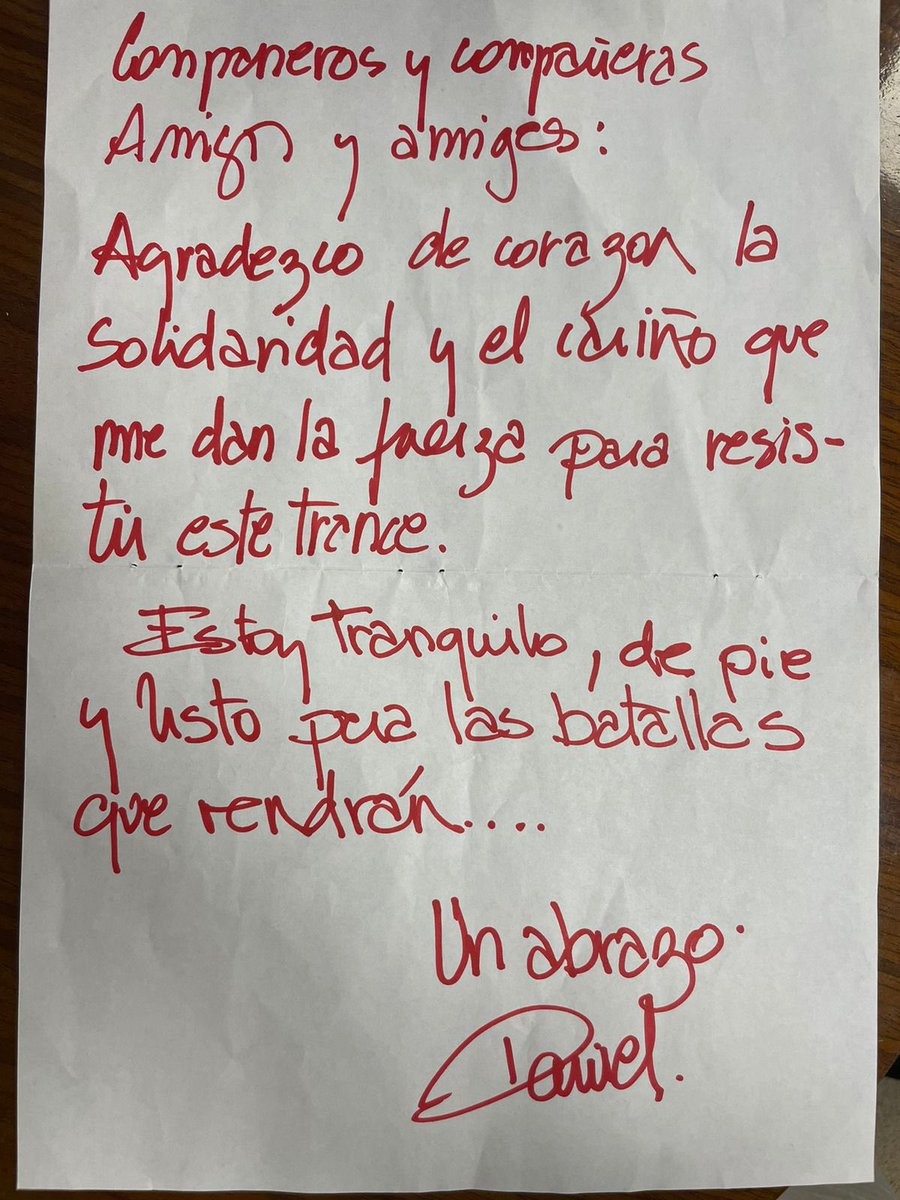 Companeros y compañeras
Amigos y amiges:
Agradezco de corazon la
Solidaridad y el cariño que
me dan la fuerza para resis-
tir este trance.
Estoy tranquilo, de pie
y listo para las batallas
que vendrán....
Un abrazo.
Daniel.